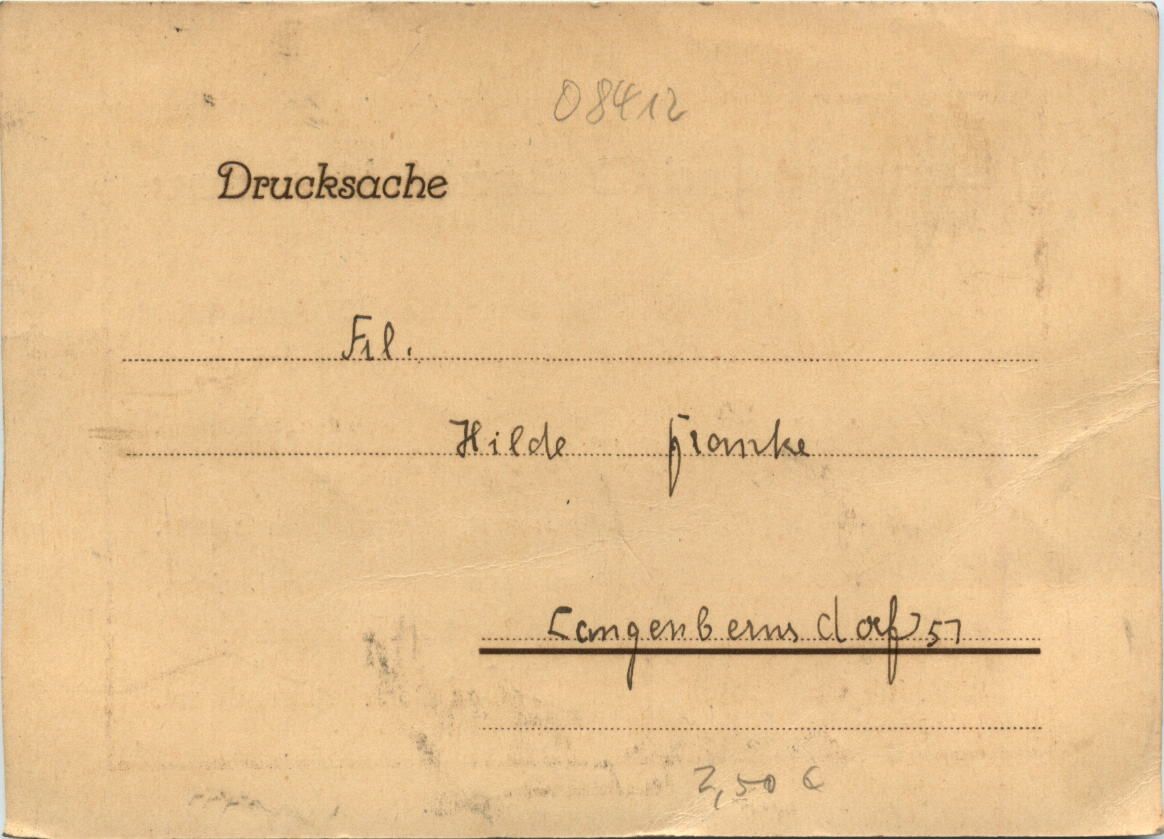 08412
Drucksache
Frl.
Hilde Franke
Langenbernsdorf 57
2,50 €